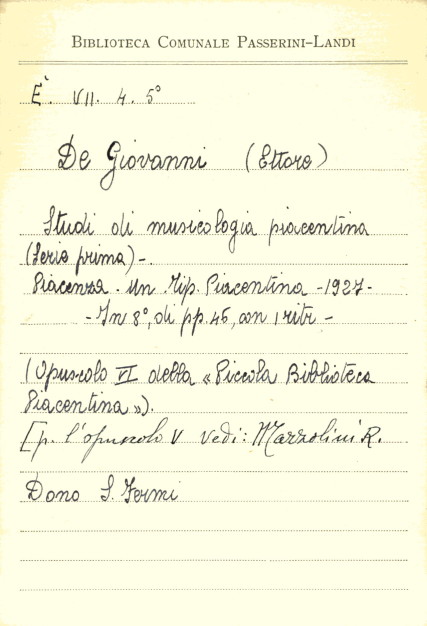 BIBLIOTECA COMUNALE PASSERINI-LANDI
È. VII. 4. 5°
De Giovanni (Ettore)
Studi di musicologia piacentina
(Serie prima) -.
Piacenza - Un. Tip. Piacentina - 1927 -
- In 8°, di pp. 45, con 1 ritr -
(Opuscolo VI della « Piccola Biblioteca
Piacentina »).
[p. l'opuscolo V vedi: Mazzolini R.
Dono S. Fermi